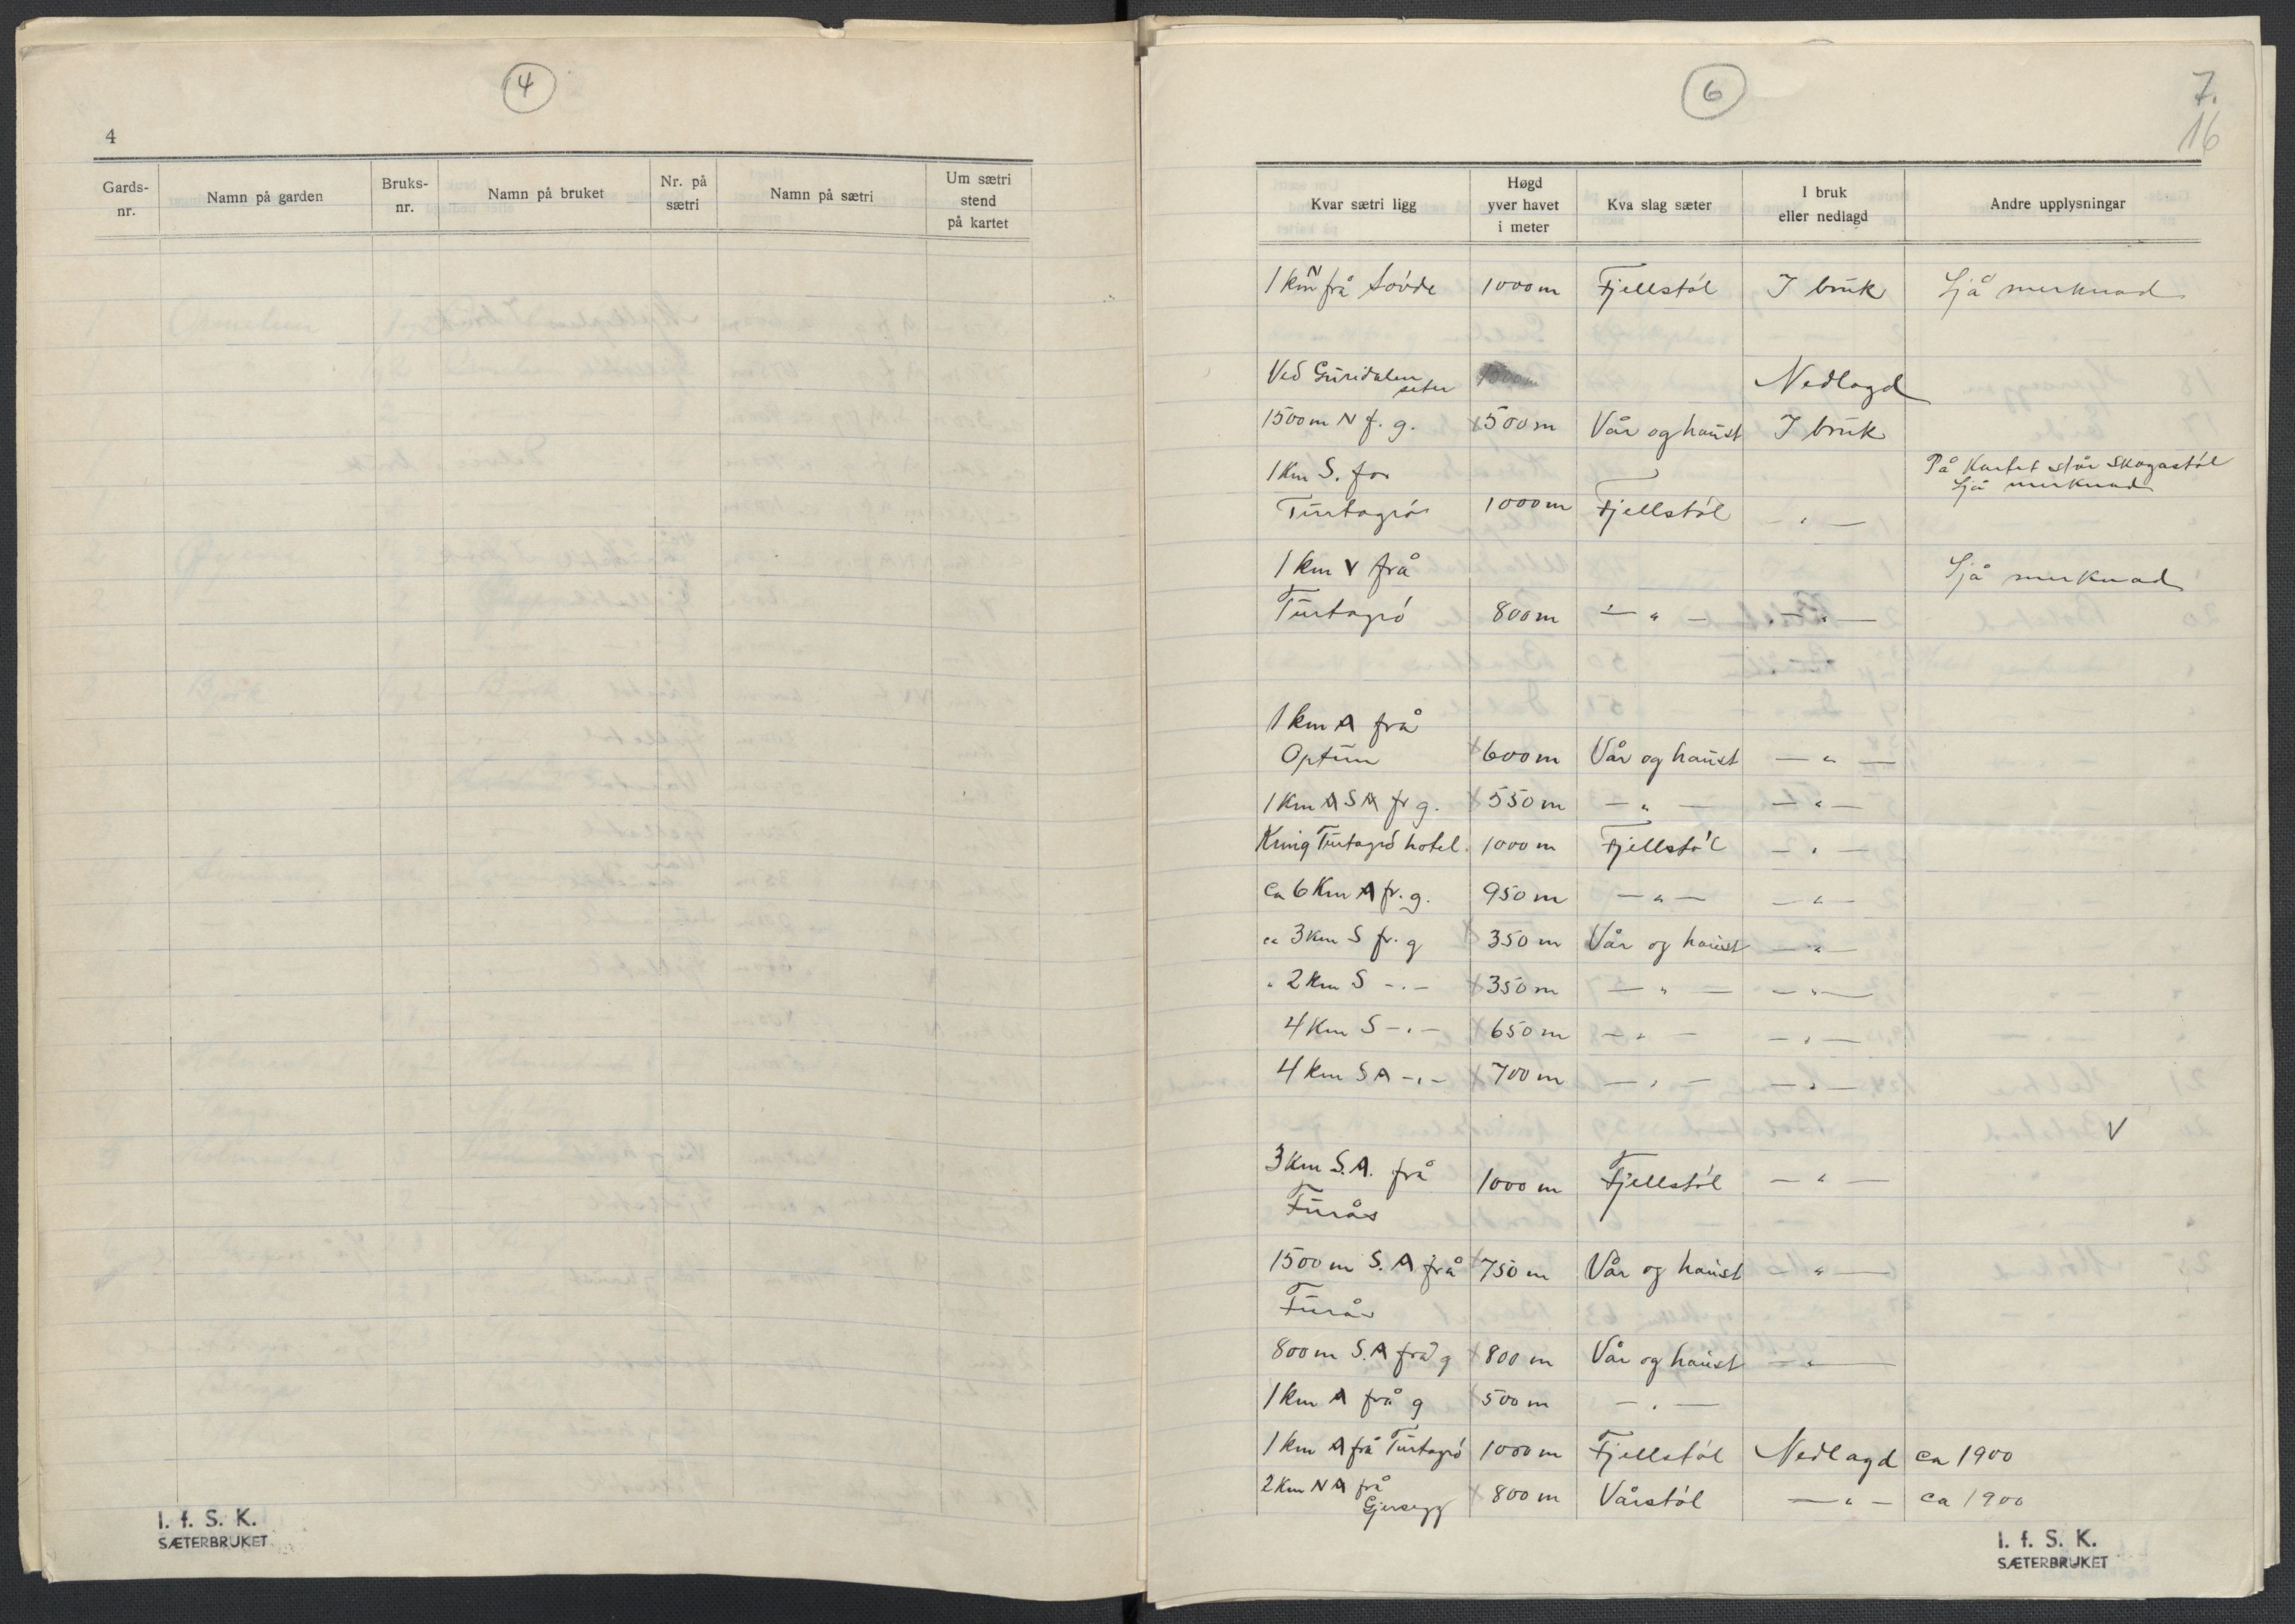 4
4
Gards-
nr.
Namn på garden
Bruks-
nr.
Namn på bruket
Nr. på
sætri
Namn på sætri
Um sætri
stend
på kartet
I. f. S. K.
SÆTERBRUKET
6
7.
16
Kvar sætri ligg
Høgd
yver havet
i meter
Kva slag sæter
I bruk
eller nedlagd
Andre upplysningar
1 km N frå Søvde 1000 m Fjellstøl I bruk Sjå merknad
Ved Guridalen Nedlagd
seter
1500 m N f. g. x 500 m Vår og haust I bruk
1 Km S. for På Kartet står Skogastøl
Sjå merknad
Turtagrø 1000 m Fjellstøl — " —
1 km V frå Sjå merknad
Turtagrø 800 m — " — — " —
1 km A frå
Optun x 600 m Vår og haust — " —
1 Km A S A fr g. x 550 m — " — — " —
Kring Turtagrø hotel. 1000 m Fjellstøl — " —
ca 6 Km A fr. g. 950 m — " — — " —
ca 3 Km S fr. g x 350 m Vår og haust — " —
" 2 Km S - " - x 350 m — " — — " —
4 Km S - " - x 650 m — " — — " —
4 Km S A - " - x 700 m — " — — " —
V
3 Km S.A. frå 1000 m Fjellstøl — " —
Furås
1500 m S. A frå x 750 m Vår og haust — " —
Furås
800 m S. A frå g x 800 m Vår og haust — " —
1 Km A frå g x 500 m — " —
1 Km A frå Turtagrø 1000 m Fjellstøl Nedlagd ca 1900
2 Km N A frå x 800 m Vårstøl — " — ca 1900
Gjersegg
I. f. S. K.
SÆTERBRUKET